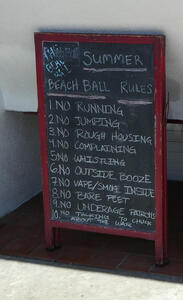 SUMMER
BEACH BALL RULES
1. NO RUNNING
2. NO JUMPING
3. NO ROUGH HOUSING
4. NO COMPLAINING
5. NO WHISTLING
6. NO OUTSIDE BOOZE
7. NO VAPE/SMOKE INSIDE
8. NO BARE FEET
9. NO UNDERAGE PATRONS
10. NO TALKING TO CHUCK
ABOUT THE WAR